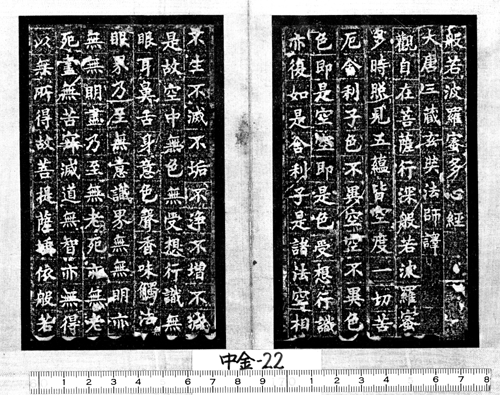 般若波羅蜜多心經
大唐三藏玄奘法師譯
觀自在菩薩行深般若波羅蜜
多時照見五蘊皆空度一切苦
厄舍利子色不異空空不異色
色即是空空即是色受想行識
亦復如是舍利子是諸法空相
不生不滅不垢不淨不增不減
是故空中無色無受想行識無
眼耳鼻舌身意色聲香味觸法
眼界乃至無意識界無無明亦
無無明盡乃至無老死亦無老
死盡無苦集滅道無智亦無得
以無所得故菩提薩埵依般若
中金-22
1 2 3 4 5 6 7 8 9 1 2 3 4 5 6 7 8